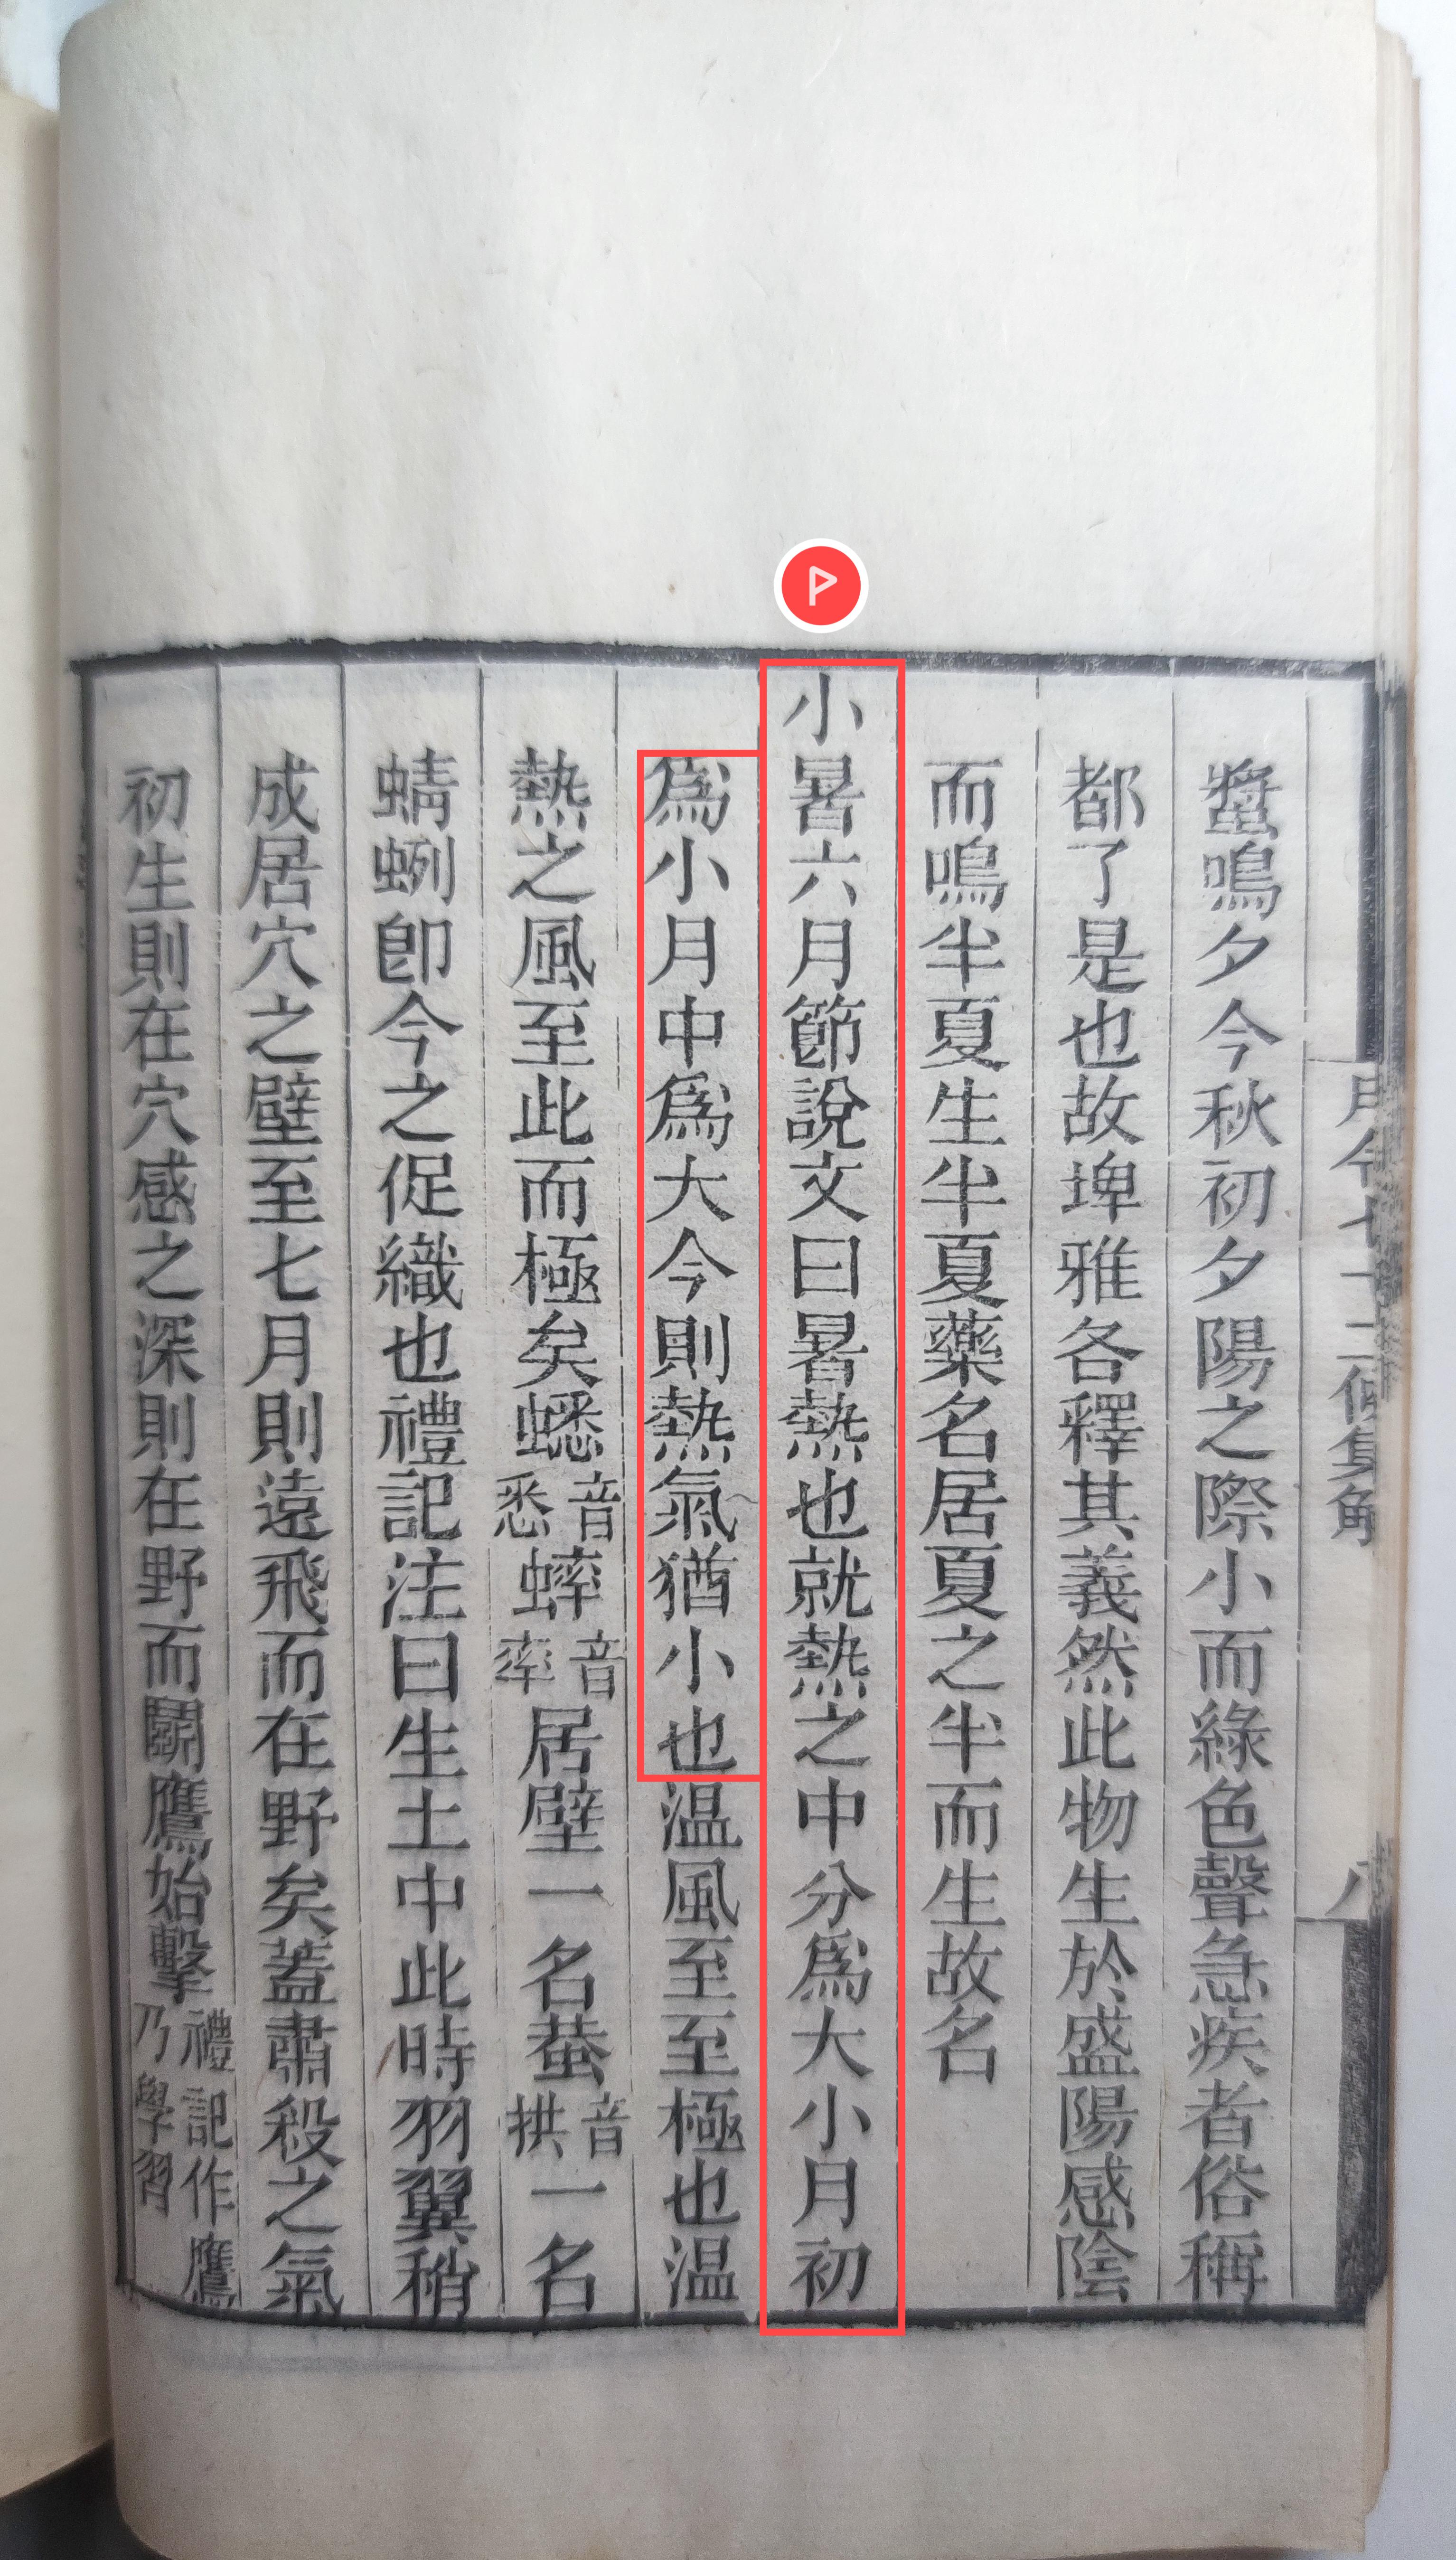 月令七十二候集解
八
螿鳴夕今秋初夕陽之際小而綠色聲急疾者俗稱
都了是也故埤雅各釋其義然此物生於盛陽感陰
而鳴半夏生半夏藥名居夏之半而生故名
小暑六月節說文曰暑熱也就熱之中分爲大小月初
爲小月中爲大今則熱氣猶小也温風至至極也温
熱之風至此而極矣蟋音悉蟀音率居壁一名蛬音拱一名
蜻蛚卽今之促織也禮記注曰生土中此時羽翼稍
成居穴之壁至七月則遠飛而在野矣蓋肅殺之氣
初生則在穴感之深則在野而鬭鷹始擊禮記作鷹乃學習